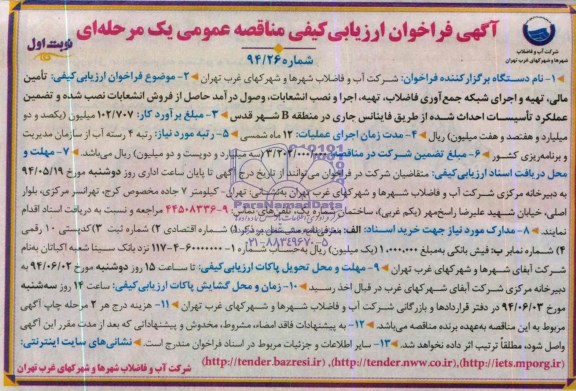 آگهی فراخوان ارزیابی کیفی مناقصه عمومی یک مرحله‌ای
شماره ۹۴/۲۶
نوبت اول
شرکت آب و فاضلاب
شهرها و شهرکهای غرب تهران
۱- نام دستگاه برگزار کننده فراخوان: شرکت آب و فاضلاب شهرها و شهرکهای غرب تهران ۲- موضوع فراخوان ارزیابی کیفی: تأمین
مالی، تهیه و اجرای شبکه جمع‌آوری فاضلاب، تهیه، اجرا و نصب انشعابات، وصول درآمد حاصل از فروش انشعابات نصب شده و تضمین
عملکرد تأسیسات احداث شده از طریق فاینانس جاری در منطقه B شهر قدس ۳- مبلغ برآورد کار: ۱۰۲/۷۰۷ میلیون (یکصد و دو
میلیارد و هفتصد و هفت میلیون) ریال ۴- مدت زمان اجرای عملیات: ۱۲ ماه شمسی ۵- رتبه مورد نیاز: رتبه ۴ رسته آب از سازمان مدیریت
و برنامه‌ریزی کشور ۶- مبلغ تضمین شرکت در مناقصه: (سه میلیارد و دویست و دو میلیون) ریال می‌باشد. ۷- مهلت و
محل دریافت اسناد ارزیابی کیفی: متقاضیان شرکت در فراخوان می‌توانند از تاریخ درج آگهی تا پایان ساعت اداری روز دوشنبه مورخ ۹۴/۰۵/۱۹
به دبیرخانه مرکزی شرکت آب و فاضلاب شهرها و شهرکهای غرب تهران به‌نشانی: تهران- کیلومتر ۷ جاده مخصوص کرج، تهرانسر مرکزی، بلوار
اصلی، خیابان شهید علیرضا راسخ‌مهر (یکم غربی)، ساختمان شماره یک، تلفن‌های تماس: ۹-۴۴۵۰۸۳۳۶ مراجعه و نسبت به دریافت اسناد اقدام
نمایند. ۸- مدارک مورد نیاز جهت خرید اسناد: الف: معرفی‌نامه مشتمل بر ذکر ۱) شماره اقتصادی ۲) شماره ثبت ۳) کدپستی ۱۰ رقمی
۴) شماره نمابر ب: فیش بانکی به‌مبلغ ۱،۰۰۰،۰۰۰ (یک میلیون) ریال به‌حساب شماره ۱-۶۰۰۰۰۰۰-۴-۱۱۷ نزد بانک سینا شعبه اکباتان به‌نام
شرکت آبفای شهرها و شهرکهای غرب تهران ۹- مهلت و محل تحویل پاکات ارزیابی کیفی: تا ساعت ۱۵ روز دوشنبه مورخ ۹۴/۰۶/۰۲ به
دبیرخانه مرکزی شرکت آبفای شهرها و شهرکهای غرب در قبال اخذ رسید ۱۰- زمان و محل گشایش پاکات ارزیابی کیفی: ساعت ۱۴ روز سه‌شنبه
مورخ ۹۴/۰۶/۰۳ در دفتر قراردادها و بازرگانی شرکت آب و فاضلاب شهرها و شهرکهای غرب تهران ۱۱- هزینه درج هر ۲ مرحله چاپ آگهی
مربوط به این مناقصه به‌عهده برنده مناقصه می‌باشد. ۱۲- به پیشنهادات فاقد امضاء، مشروط، مخدوش و پیشنهاداتی که بعد از مدت مقرر این آگهی
واصل شود، مطلقاً ترتیب اثر داده نخواهد شد. ۱۳- سایر اطلاعات و جزئیات مربوط در اسناد فراخوان مندرج است. نشانی‌های سایت اینترنتی:
(http://iets.mporg.ir)، (http://tender.nww.co.ir)، (http://tender.bazresi.ir)
شرکت آب و فاضلاب شهرها و شهرکهای غرب تهران
ParsNamadData
۰۲۱-۸۸۳۴۹۶۷۰-۵